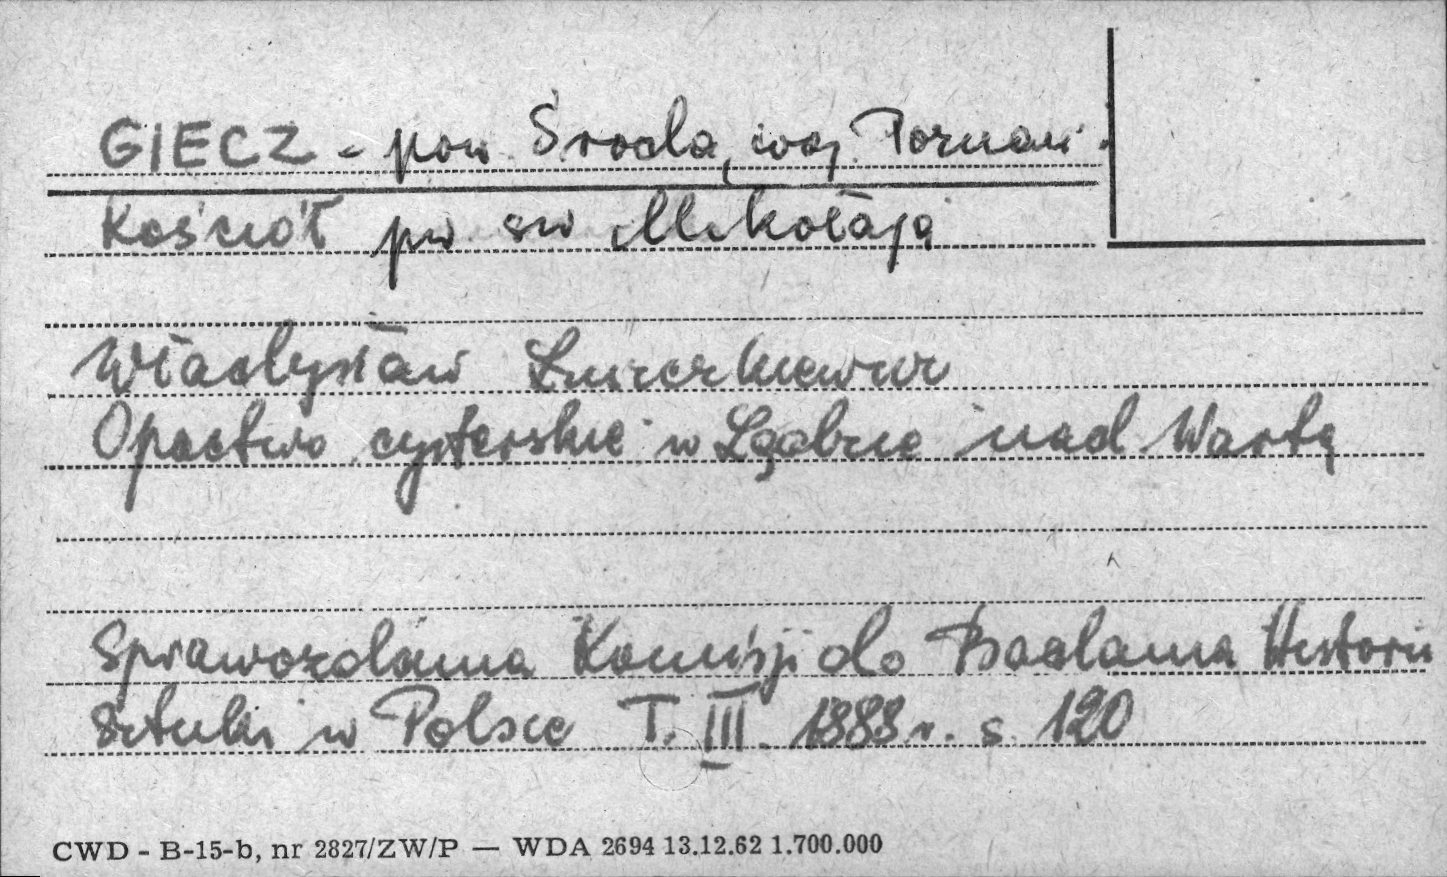 GIECZ - pow. Środa, woj. Poznań.
Kościół pw św Mikołaja
Władysław Łuszczkiewicz
Opactwo cysterskie w Lądzie nad Wartą
Sprawozdania Komisji do Badania Historii
Sztuki w Polsce T. III. 1888 r. s. 120
CWD - B-15-b, nr 2827/ZW/P — WDA 2694 13.12.62 1.700.000